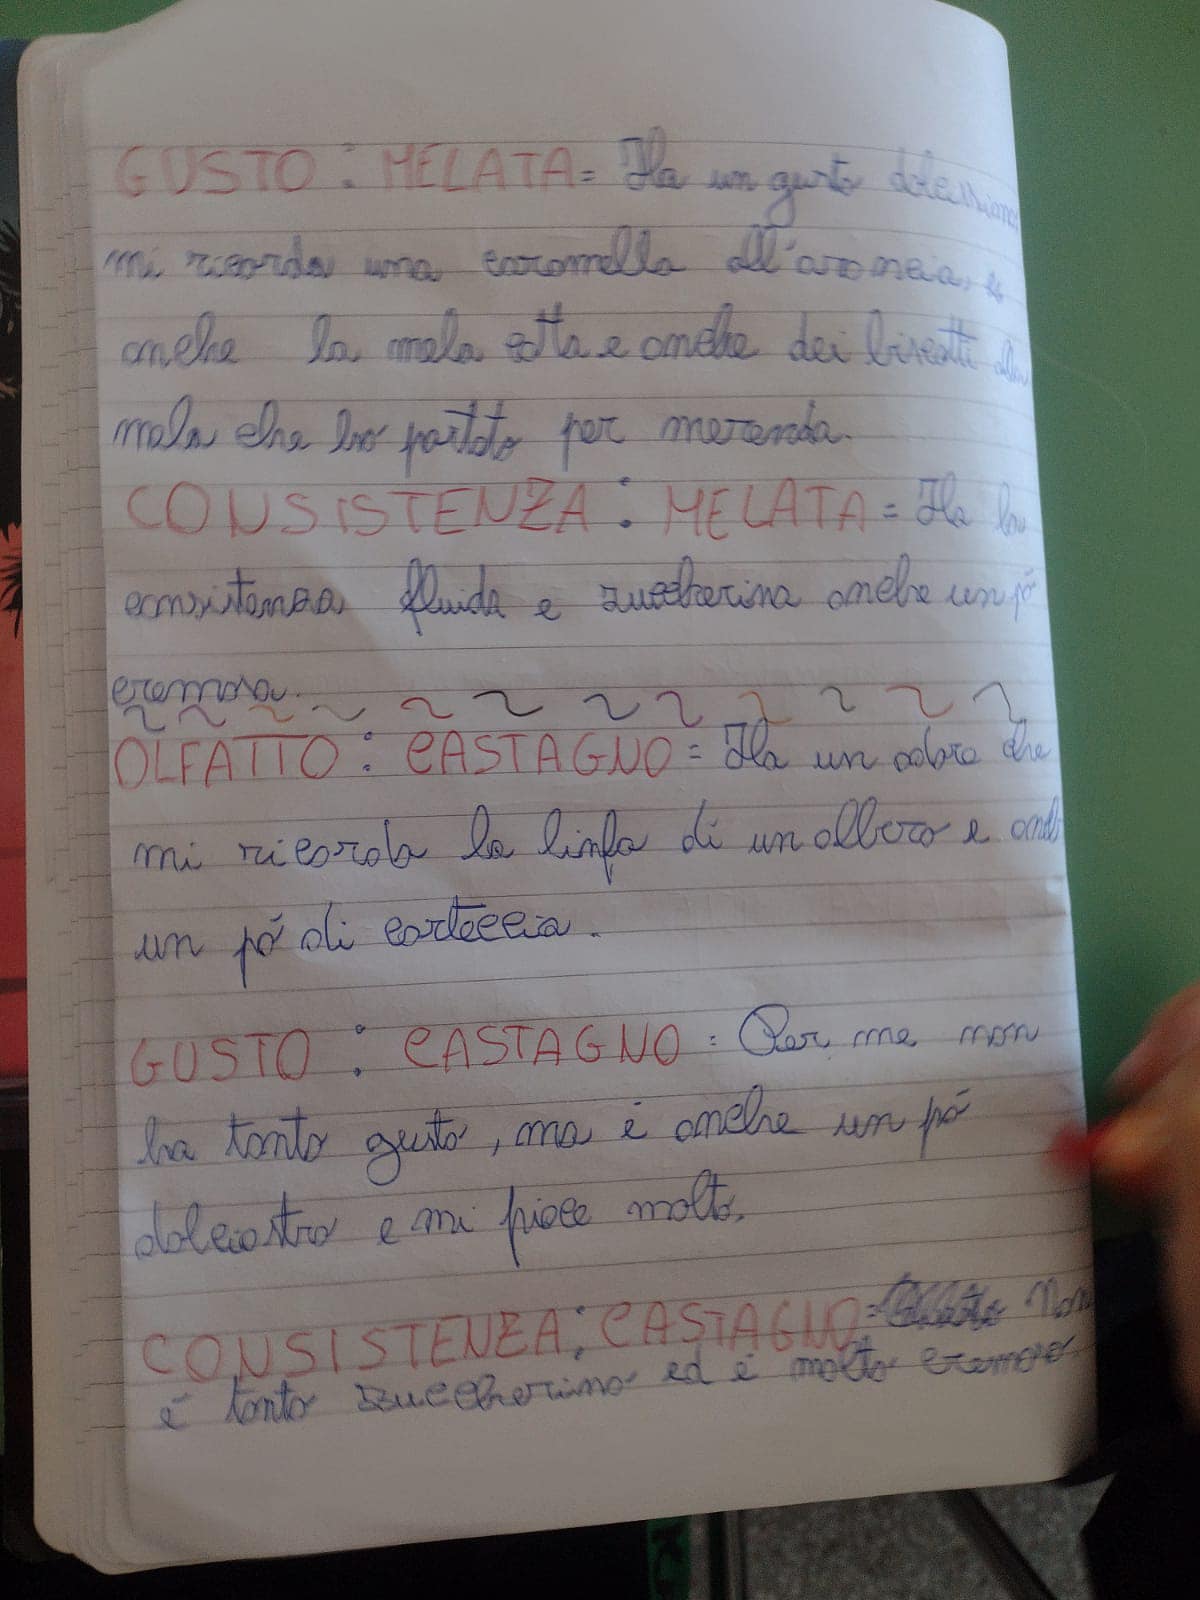 GUSTO : MELATA = Ha un gusto dolcissimo
mi ricorda una caramella all'arancia, e
anche la mela cotta e anche dei biscotti alla
mela che ho portato per merenda.
CONSISTENZA : MELATA = Ha la
consistenza fluida e zuccherina anche un pó
cremosa.
OLFATTO : CASTAGNO = Ha un odore che
mi ricorda la linfa di un albero e anche
un pó di corteccia.
GUSTO : CASTAGNO = Per me non
ha tanto gusto, ma é anche un pó
dolciastro e mi piace molto.
CONSISTENZA : CASTAGNO = Non
é tanto zuccherino ed é molto cremoso.